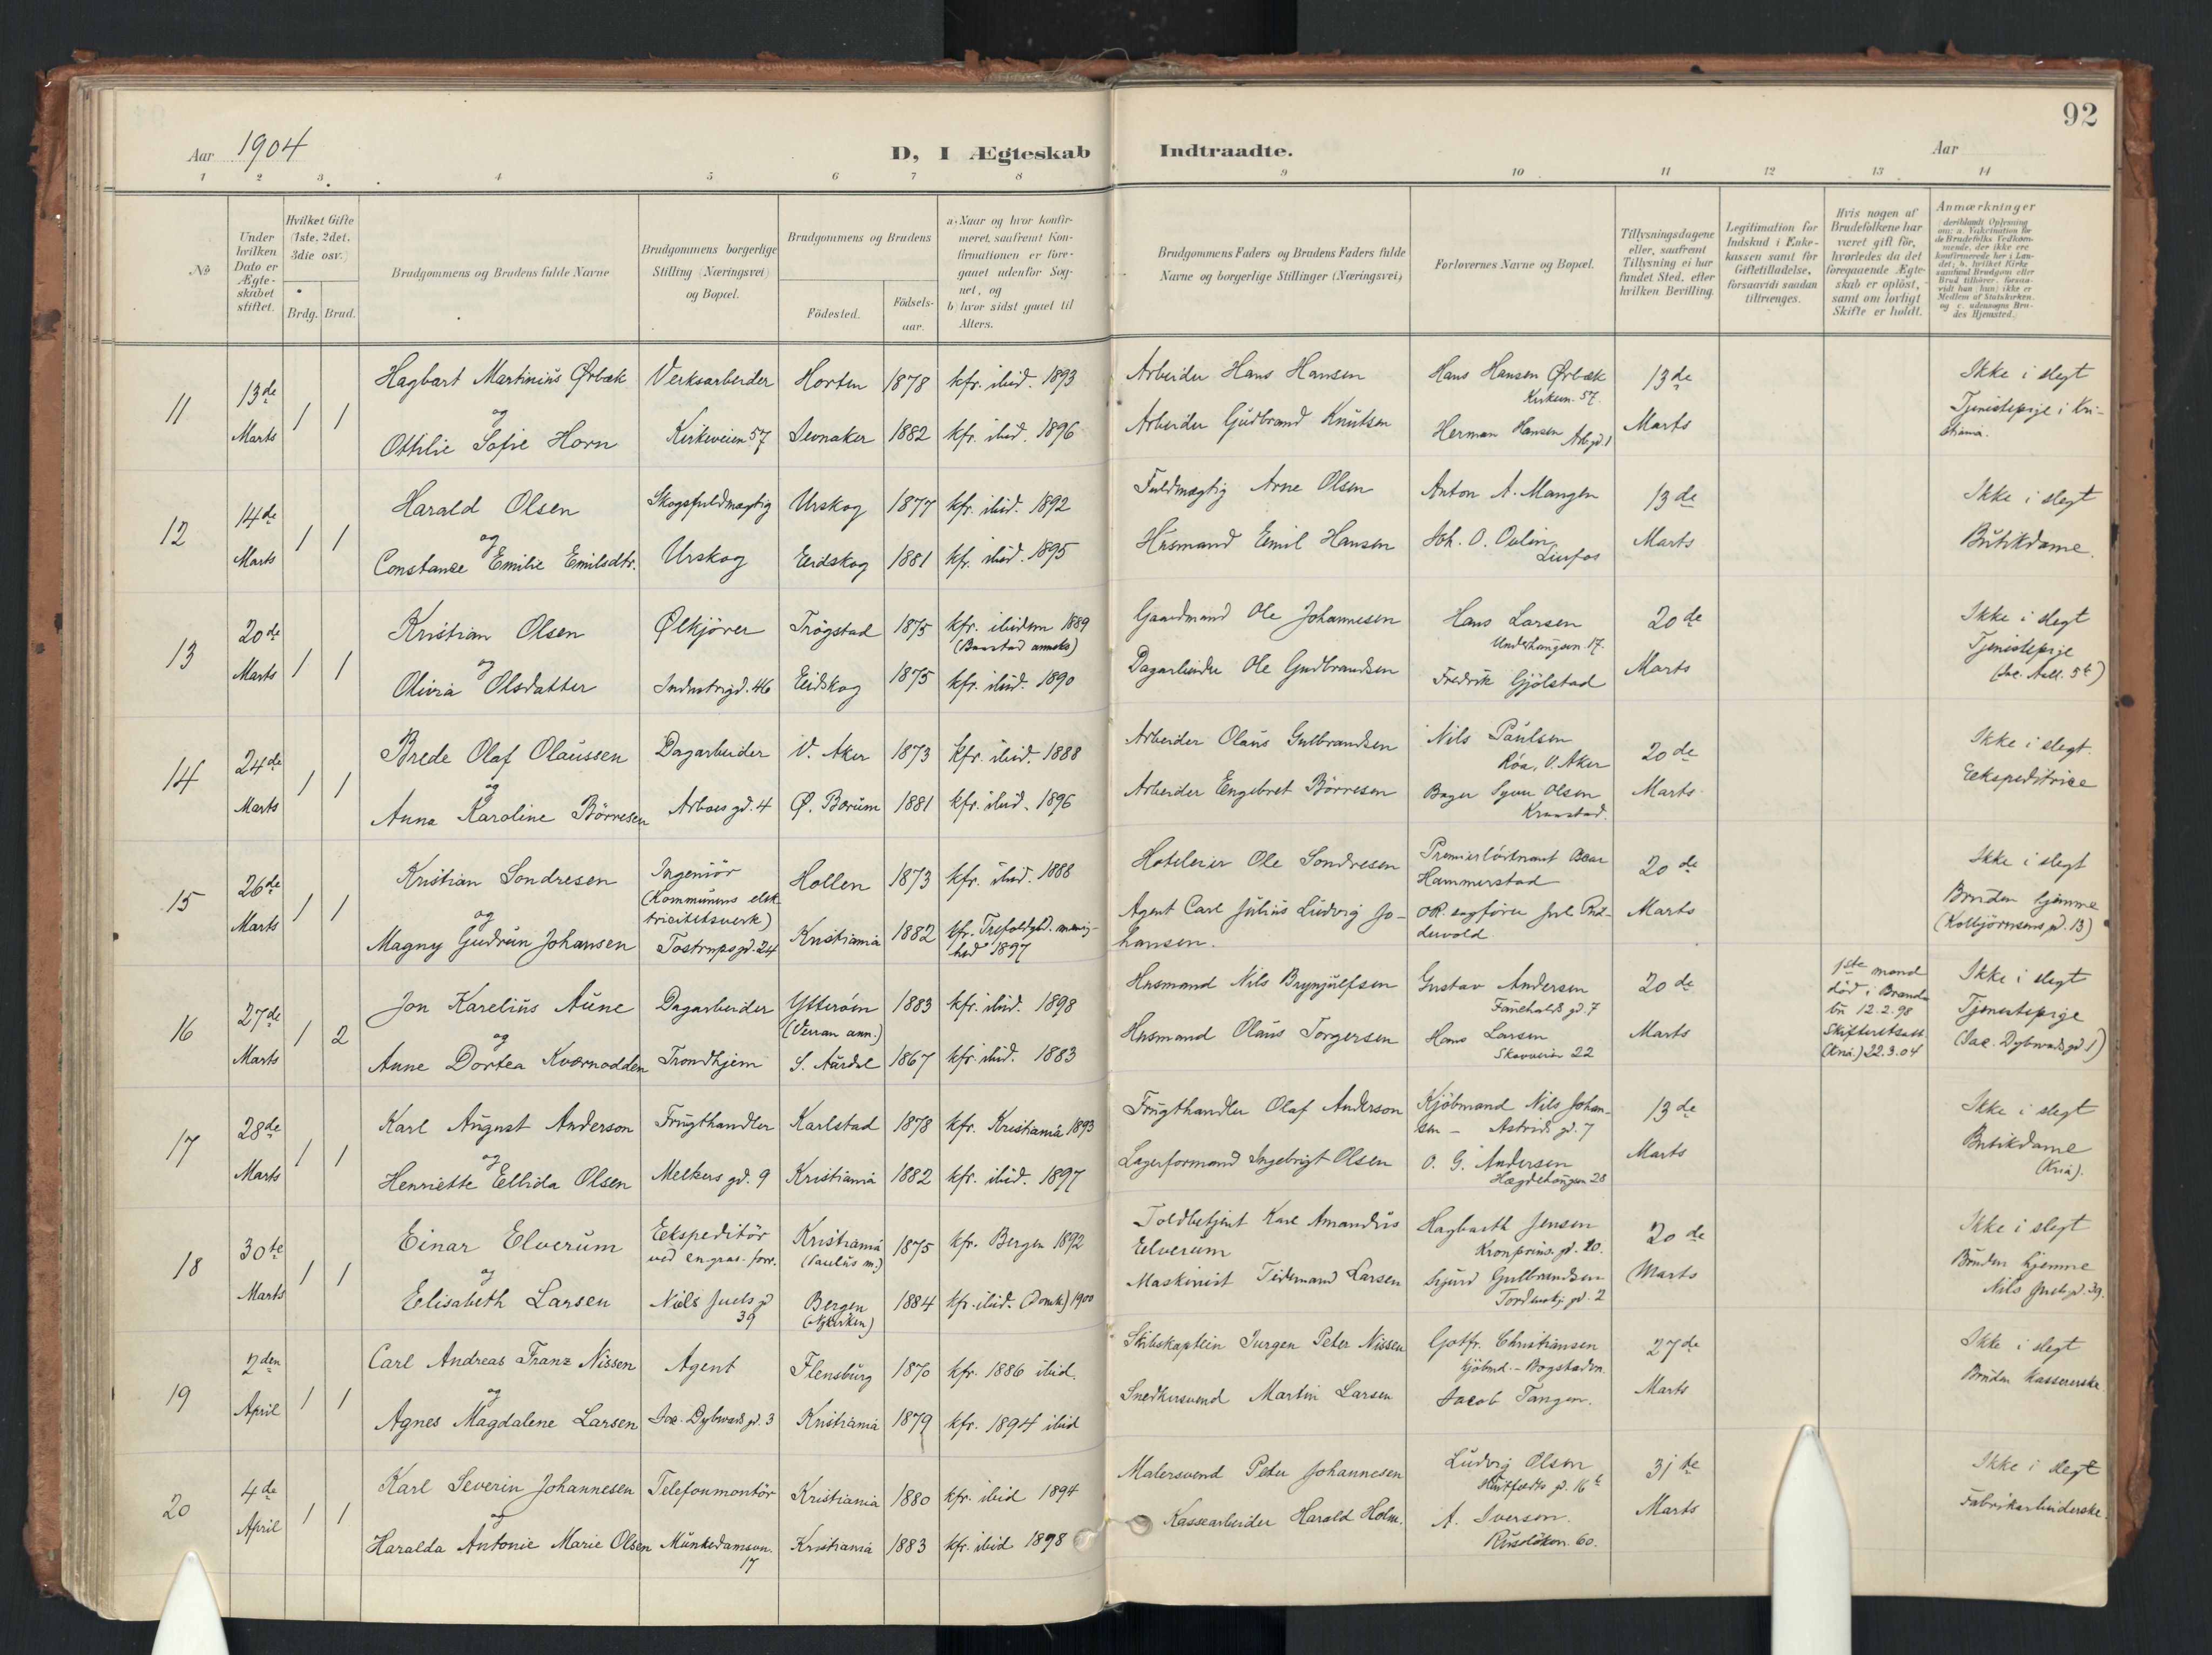 92
Aar 1904 D, I Ægteskab Indtraadte. Aar
1 2 3 4 5 6 7 8 9 10 11 12 13 14
No
Under hvilken Dato er Ægteskabet stiftet.
Hvilket Gifte (1ste, 2det, 3die osv.)
Brdg. Brud.
Brudgommens og Brudens fulde Navne
Brudgommens borgerlige Stilling (Næringsvei) og Bopæl.
Brudgommens og Brudens
Födested. Födsels-aar.
a) Naar og hvor konfirmeret, saafremt Konfirmationen er foregaaet udenfor Sognet, og
b) hvor sidst gaaet til Alters.
Brudgommens Faders og Brudens Faders fulde Navne og borgerlige Stillinger (Næringsvei)
Forlovernes Navne og Bopæl.
Tillysningsdagene eller, saafremt Tillysning ei har fundet Sted, efter hvilken Bevilling.
Legitimation for Indskud i Enkekassen samt for Giftetilladelse, forsaavidt saadan tiltrænges.
Hvis nogen af Brudefolkene har været gift før, hvorledes da det foregaaende Ægteskab er oplöst, samt om lovligt Skifte er holdt.
Anmærkninger (deriblandt Oplysning om: a. Vakcination for de Brudefolks Vedkommende, der ikke ere konfirmerede her i Landet; b. hvilket Kirkesamfund Brudgom eller Brud tilhörer, forsaavidt han (hun) ikke er Medlem af Statskirken, og c. udensogns Brudes Hjemsted.)
11 13de Marts 1 1
Hagbart Martinius Ørbæk Verksarbeider Horten 1878 kfr. ibid. 1893 Arbeider Hans Hansen Hans Hansen Ørbæk Kirkevn. 57. 13de Ikke i slegt
og
Ottilie Sofie Horn Kirkeveien 57 Sevnaker 1882 kfr. ibid. 1896 Arbeider Gudbrand Knutsen Herman Hansen Marts Tjenestepige i Kristiania.
12 14de Marts 1 1
Harald Olsen Skogsfuldmægtig Urskog 1877 kfr. ibid. 1892 Fuldmægtig Arne Olsen Anton A. Mangen 13de Ikke i slegt
og
Constance Emilie Emilsdtr. Urskog Eidskog 1881 kfr. ibid. 1895 Husmand Emil Hansen Joh. O. Marts Butikdame.
13 20de Marts 1 1
Kristian Olsen Ølkjörer Trögstad 1875 kfr. ibidem 1889 (Baastad anneks) Gaardmand Ole Johannesen Hans Larsen Underhaugsvn. 17. 20de Ikke i slegt
og
Olivia Olsdatter Industrigd. 46 Eidskog 1875 kfr. ibid. 1890 Dagarbeider Ole Gudbrandsen Fredrik Gjölstad Marts Tjenestepige (Jac. Aall. 5b)
14 24de Marts 1 1
Brede Olaf Olaussen Dagarbeider V. Aker 1873 kfr. ibid. 1888 Arbeider Olaus Gulbrandsen Nils Paulsen Röa, V. Aker 20de Ikke i slegt.
og
Anna Karoline Börresen Arboes gd. 4 Ø. Bærum 1881 kfr. ibid. 1896 Arbeider Engebret Börresen Olsen Marts Ekspeditrice
15 26de Marts 1 1
Kristian Sondresen Ingeniör (Kommunens elektricitetsverk) Hollen 1873 kfr. ibid. 1888 Hoteleier Ole Sondresen Premierlöitnant Hammerstad 20de Ikke i slegt
og
Magny Gudrun Johansen Tostrupsgd. 24 Kristiania 1882 kfr. Trefoldghd. menighed 1897 Agent Carl Julius Ludvig Johansen. OR. sagförer Marts Bruden hjemme (Kolbjörnsens gd. 13)
16 27de Marts 1 2
Jon Karelius Aune Dagarbeider Ytteröen (Verran ann.) 1883 kfr. ibid. 1898 Husmand Nils Brynjulfsen Gustav Andersen Fauchalds gd. 7 20de 1ste mand död i Brandbu 12.2.98 Skifteretsatt. (Kria.) 22.3.04 Ikke i slegt
og
Anne Dortea Kværnodden Trondhjem S. Aurdal 1867 kfr. ibid. 1883 Husmand Olaus Torgersen Hans Larsen Skovveien 22 Marts Tjenestepige (Jac. Dybwads gd 1)
17 28de Marts 1 1
Karl August Anderson Frugthandler Karlstad 1878 kfr. Kristiania 1893 Frugthandler Olaf Anderson Kjöbmand Nils Johansen – Astrids gd. 7 13de Ikke i slegt
og
Henriette Ellida Olsen Meltzers gd. 9 Kristiania 1882 kfr. ibid. 1897 Lagerformand Ingebrigt Olsen O. G. Andersen Hægdehaugsvn 28 Marts Butikdame (Kria).
18 30te Marts 1 1
Einar Elverum Ekspeditör ved engros. forr. Kristiania (Paulus m.) 1875 kfr. Bergen 1892 Toldbetjent Karl Amandus Elverum Hagbarth Jensen Kronprins. gd. 20. 20de Ikke i slegt
og
Elisabeth Larsen Niels Juels gd 39 Bergen (Nykirken) 1884 kfr. ibid. (Domk) 1900 Maskinist Tidemand Larsen Sigurd Gulbrandsen Tordenskj. gd. 2 Marts Bruden hjemme Nils Juels gd. 39.
19 2den April 1 1
Carl Andreas Franz Nissen Agent Flensburg 1870 kfr. 1886 ibid. Skibskaptein Jurgen Peter Nissen Gotfr. Christiansen kjöbmd. – Bogstadvn. 27de Ikke i slegt
og
Agnes Magdalene Larsen Jac. Dybwads gd. 3 Kristiania 1879 kfr. 1894 ibid Snedkersvend Martin Larsen Jacob Tangen. Marts Bruden kassererske
20 4de April 1 1
Karl Severin Johannesen Telefonmontör Kristiania 1880 kfr. ibid 1894 Malersvend Peter Johannesen Ludvig Olsen Huitfeldts gd. 16b 31te Ikke i slegt
og
Haralda Antonie Marie Olsen Munkedamsvn. 17 Kristiania 1883 kfr. ibid 1898 Kassearbeider Harald Holm. A. Iverson. Ruselökvn. 60. Marts Fabrikarbeiderske.